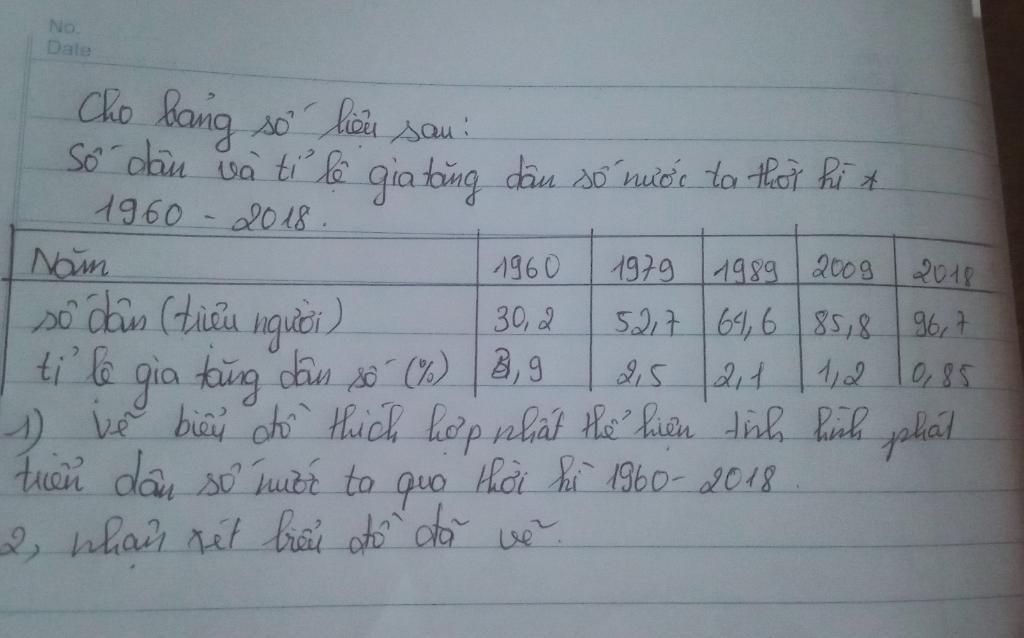 No.
Date
Cho bảng số liệu sau:
Số dân và tỉ lệ gia tăng dân số nước ta thời kì
1960 - 2018.
Năm 1960 1979 1989 2009 2018
số dân (triệu người) 30,2 52,7 64,6 85,8 96,7
tỉ lệ gia tăng dân số (%) ,9 2,5 2,1 1,2 0,85
1) vẽ biểu đồ thích hợp nhất thể hiện tình hình phát
triển dân số nước ta qua thời kì 1960 - 2018.
2, nhận xét biểu đồ đã vẽ.